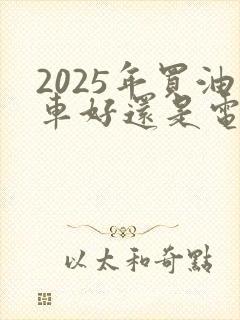 2025年買油
車好還是電
以太和奇點